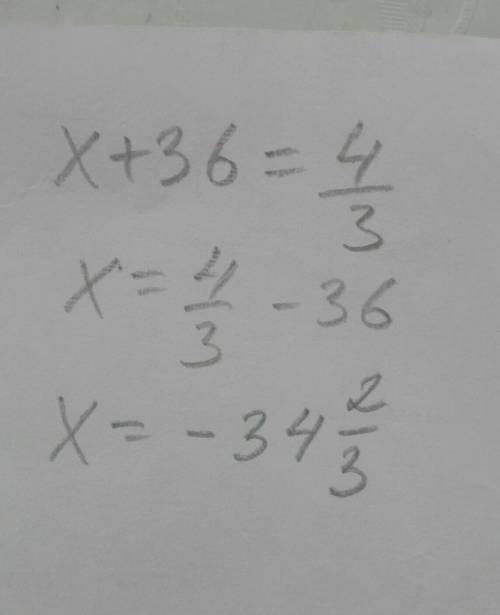 x+36=4/3
x=4/3-36
x=-34 2/3